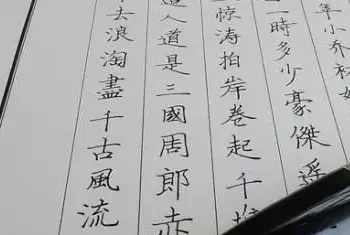 去浪淘盡千古風流
人道是三國周郎赤
惊涛拍岸卷起千
一時多少豪傑遥
年小乔初